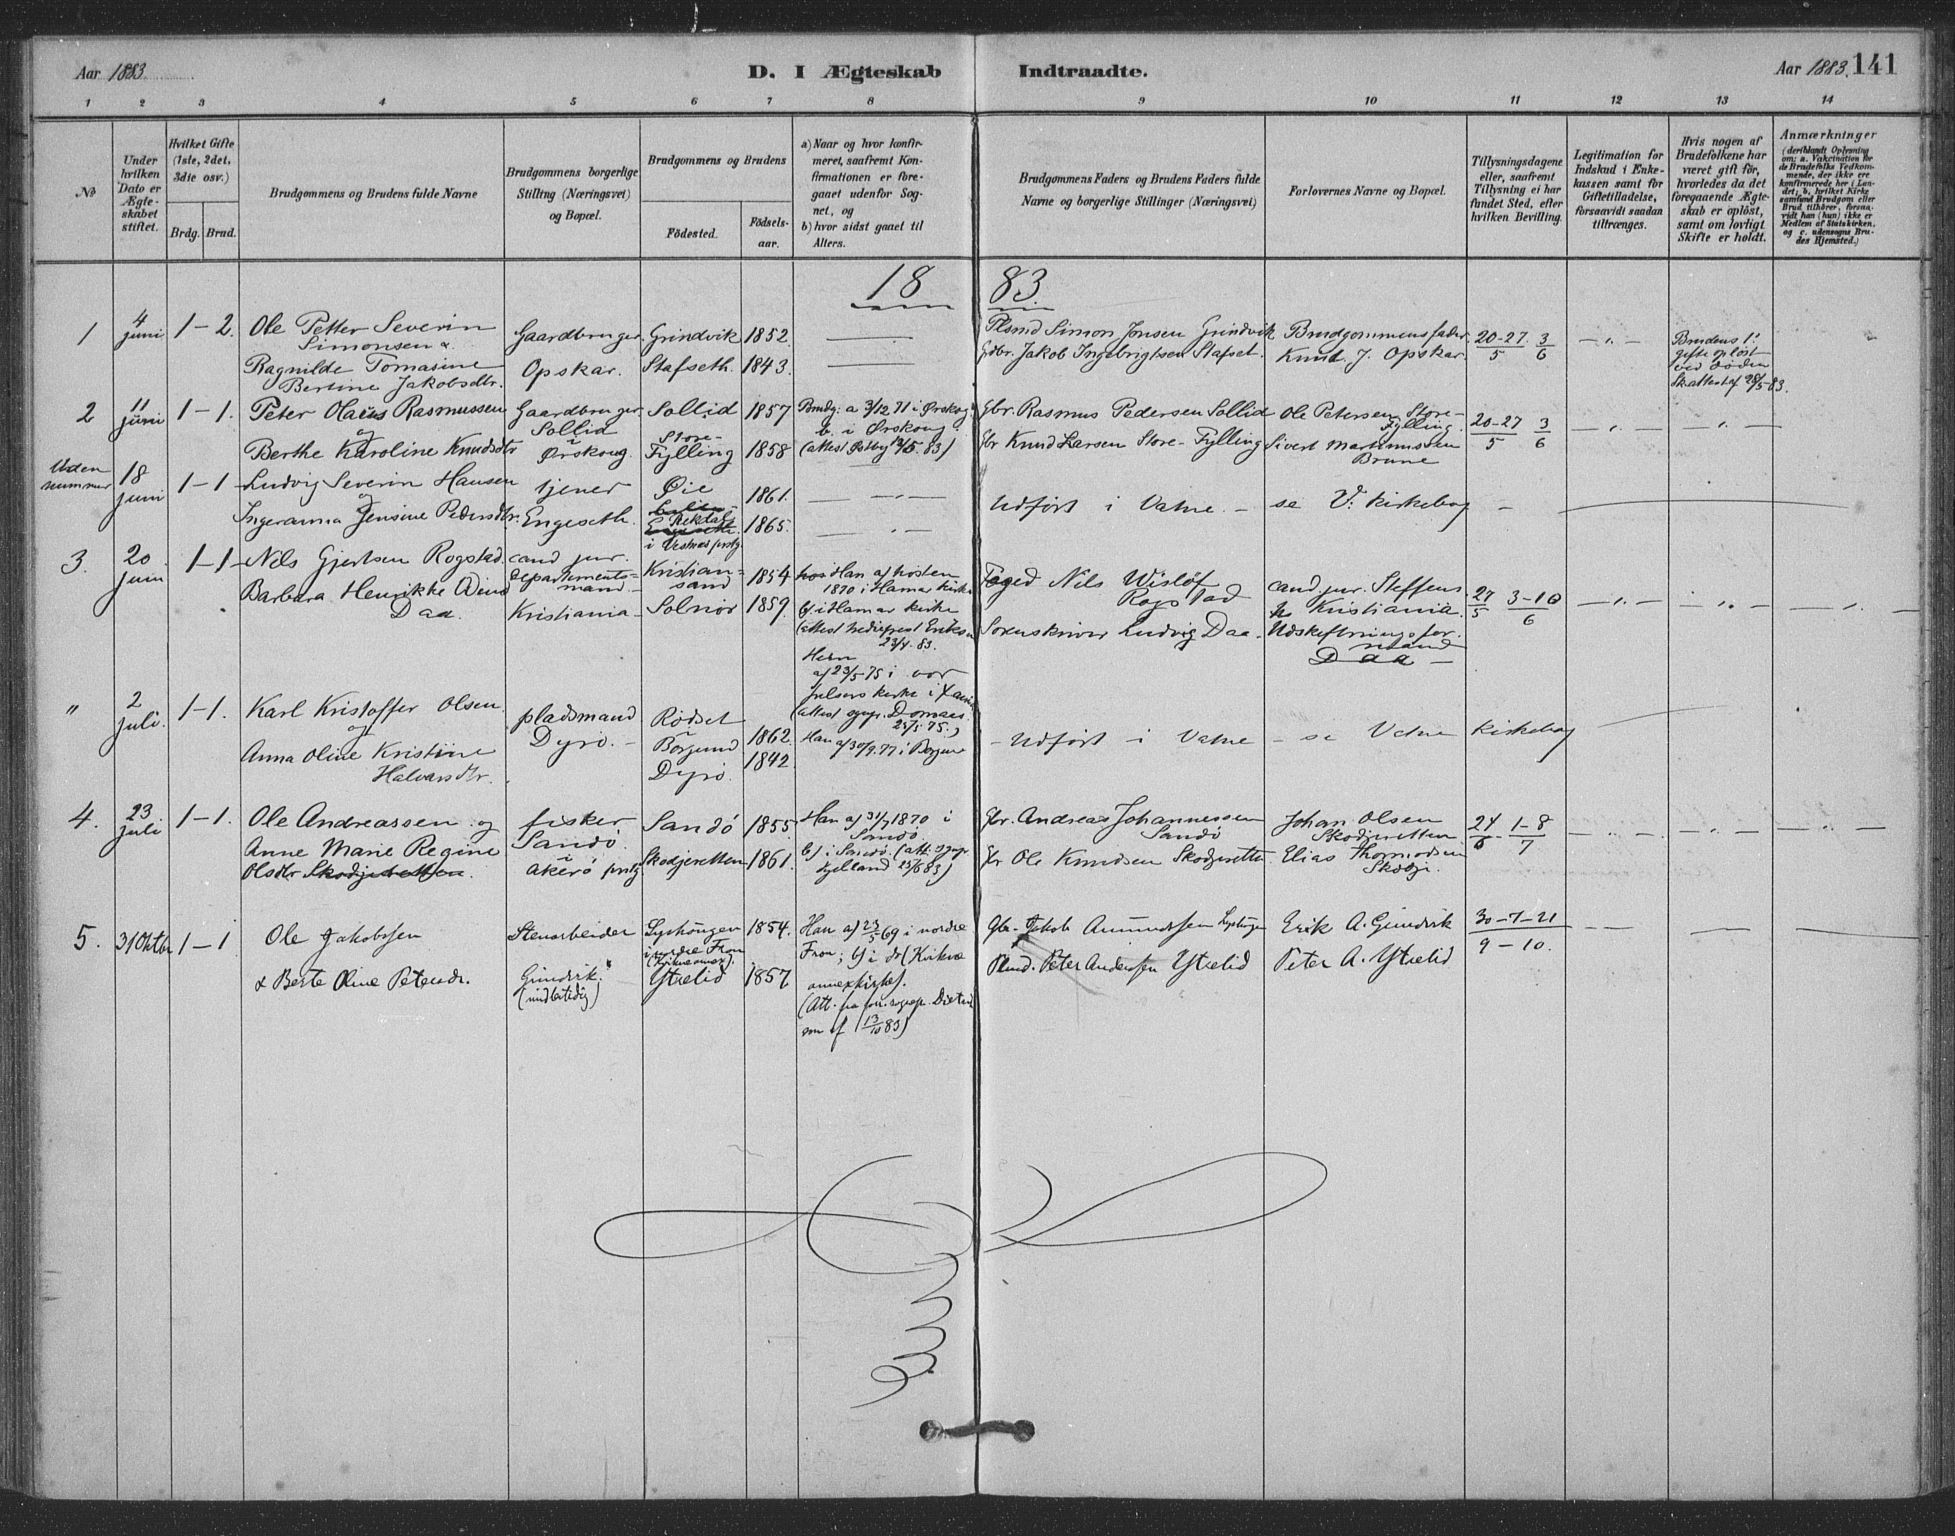 Aar 1883
D. I Ægteskab
Indtraadte.
Aar 1883. 141
1 2 3 4 5 6 7 8 9 10 11 12 13 14
No
Under hvilken Dato er Ægteskabet stiftet.
Hvilket Gifte (1ste, 2det, 3die osv.)
Brdg. Brud.
Brudgommens og Brudens fulde Navne
Brudgommens borgerlige Stilling (Næringsvei) og Bopæl.
Brudgommens og Brudens
Fødested.
Fødselsaar.
a) Naar og hvor konfirmeret, saafremt Konfirmationen er foregaaet udenfor Sognet, og
b) hvor sidst gaaet til Alters.
Brudgommens Faders og Brudens Faders fulde Navne og borgerlige Stillinger (Næringsvei)
Forlovernes Navne og Bopæl.
Tillysningsdagene eller, saafremt Tillysning ei har fundet Sted, efter hvilken Bevilling.
Legitimation for Indskud i Enkekassen samt for Giftetilladelse, forsaavidt saadan tiltrænges.
Hvis nogen af Brudefolkene har været gift før, hvorledes da det foregaaende Ægteskab er opløst, samt om lovligt Skifte er holdt.
Anmærkninger
(deriblandt Oplysning om: a. Vakcination for de Brudefolks Vedkommende, der ikke ere konfirmerede her i Landet; b. hvilket Kirkesamfund Brudgom eller Brud tilhører, forsaavidt han (hun) ikke er Medlem af Statskirken, og c. udensogns Brudes Hjemsted.)
18 83.
1 4 juni 1 - 2. Ole Petter Severin Simonsen &
Gaardbruger Grindvik 1852.
Simon Jonsen Grindvik Brudgommens fader 20-27/5 3/6
Ragnilde Tomasine Bertine Jakobsdtr.
Opskar. Stafseth. 1843.
Gbr. Jakob Ingebrigtsen Stafset. Knut J. Opskar.
Brudens 1. gifte opløst ved døden
Skatteat af 28/5-83.
2 11 juni 1 - 1. Peter Olaus Rasmussen og
Gaardbruger Sollid i Ørskoug. Sollid 1857
Brudg: a 3/12 71 i Ørskog. b. i Ørskoug.
Gbr. Rasmus Pedersen Sollid Ole Petersen Store-Fylling. 20-27/5 3/6
Berthe Karoline Knudsdtr Store-Fylling 1858
Gbr Knud Larsen Store-Fylling Sivert Martinussen Brune
Uden nummer 18 juni 1 - 1 Ludvig Severin Hansen og
tjener Øie 1861.
Ingeranna Jensine Pedersdtr. Engeseth. Rekdal i Vestnes prstg 1865.
Udført i Vatne. - se V. kirkebog -
3. 20 juni 1 - 1 Nils Gjertsen Rogstad
cand jur. Departements- mand Kristiansand 1854
1870 i Hamar kirke
Foged Nils Wisløf Rogstad
cand. jur. Steffens Kristiania 27/5 3-10/6
Barbara Henrikke Daa
Kristiania Solnør 1859.
b) i Hamar kirke
23/4. 83.
Sorenskriver Ludvig Daa. Udskiftningsformand Daa -
af 23/5-75 i vor frelsers kirke
" 2 juli. 1 - 1. Karl Kristoffer Olsen og
pladsmand Dyrø. - Rødset i Borgund 1862.
Anna Oline Kristine Halvarsdtr. Dyrø. 1842.
Han af 30/9. 77 i Borgund
- Udført i Vatne - se Vatne kirkebog
4. 23 juli 1 - 1. Ole Andreassen og
fisker Sandø i Akerø prstg Sandø 1855
Han af 31/7 1870 i Sandø.
Gbr. Andreas Johannessen Sandø
Johan Olsen Skodjeretten 24/6 1-8/7
Anne Marie Regine Olsdtr Skodjeretten.
Skodjeretten 1861.
b) i Sandø. (att. sogpr. Kjelland 25/6 83)
Gbr Ole Knudsen Skodjeretten Elias Thormodsen Skodje.
5. 31 Oktbr 1 - 1 Ole Jakobssen
Stenarbeider i nordre Fron 1854.
Han a) 23/5 69 i nordre Fron; b) i do (Kvikne annexkirke).
Gbr. Jakob Amundssen Erik A. Grindvik 30-7-21
9 - 10.
& Berte Oline Petersdr. Grindvik (midlertidig) Ytrelid 1857
som af 13/10 83)
Peter Anderssen Ytrelid Peter A. Ytrelid